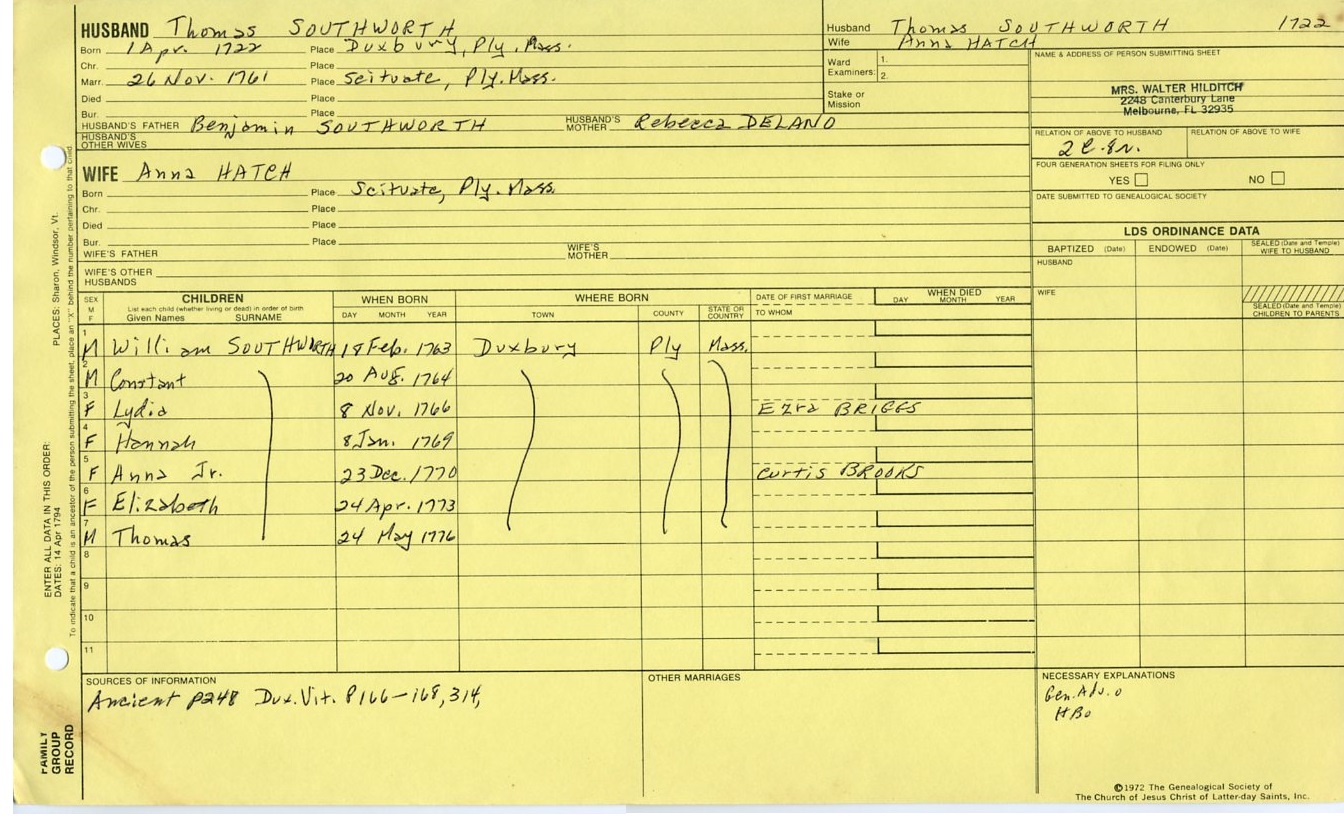 HUSBAND Thomas SOUTHWORTH
Born 1 Apr. 1722 Place Duxbury, Ply. Mass.
Chr. Place
Marr. 26 Nov. 1761 Place Scituate, Ply. Mass.
Died Place
Bur. Place
HUSBAND'S FATHER Benjamin SOUTHWORTH HUSBAND'S MOTHER Rebecca DELANO
HUSBAND'S OTHER WIVES
Husband Thomas SOUTHWORTH 1722
Wife Anna HATCH
Ward
Examiners: 1.
2.
Stake or
Mission
NAME & ADDRESS OF PERSON SUBMITTING SHEET
MRS. WALTER HILDITCH
2248 Canterbury Lane
Melbourne, FL 32935
RELATION OF ABOVE TO HUSBAND RELATION OF ABOVE TO WIFE
FOUR GENERATION SHEETS FOR FILING ONLY
YES NO
DATE SUBMITTED TO GENEALOGICAL SOCIETY
WIFE Anna HATCH
Born Place Scituate, Ply. Mass.
Chr. Place
Died Place
Bur. Place
WIFE'S FATHER WIFE'S MOTHER
WIFE'S OTHER
HUSBANDS
LDS ORDINANCE DATA
BAPTIZED (Date) ENDOWED (Date) SEALED (Date and Temple) WIFE TO HUSBAND
HUSBAND
WIFE
SEALED (Date and Temple) CHILDREN TO PARENTS
SEX M F CHILDREN WHEN BORN WHERE BORN DATE OF FIRST MARRIAGE WHEN DIED
List each child (whether living or dead) in order of birth
Given Names SURNAME DAY MONTH YEAR TOWN COUNTY STATE OR COUNTRY TO WHOM DAY MONTH YEAR
1 M William SOUTHWORTH 18 Feb. 1763 Duxbury Ply Mass.
2 M Constant 20 Aug. 1764
3 F Lydia 8 Nov. 1766 Ezra BRIGGS
4 F Hannah 8 Jan. 1769
5 F Anna Jr. 23 Dec. 1770 Curtis BROOKS
6 F Elizabeth 24 Apr. 1773
7 M Thomas 24 May 1776
8
9
10
11
SOURCES OF INFORMATION
Ancient P248 Dux. Vit. P166-168, 314,
OTHER MARRIAGES
NECESSARY EXPLANATIONS
Gen. Adv. o
HBo
©1972 The Genealogical Society of
The Church of Jesus Christ of Latter-day Saints, Inc.
ENTER ALL DATA IN THIS ORDER:
DATES: 14 Apr 1794 PLACES: Sharon, Windsor, Vt.
To indicate that a child is an ancestor of the person submitting the sheet, place an "X" behind the number pertaining to that child.
FAMILY
GROUP
RECORD